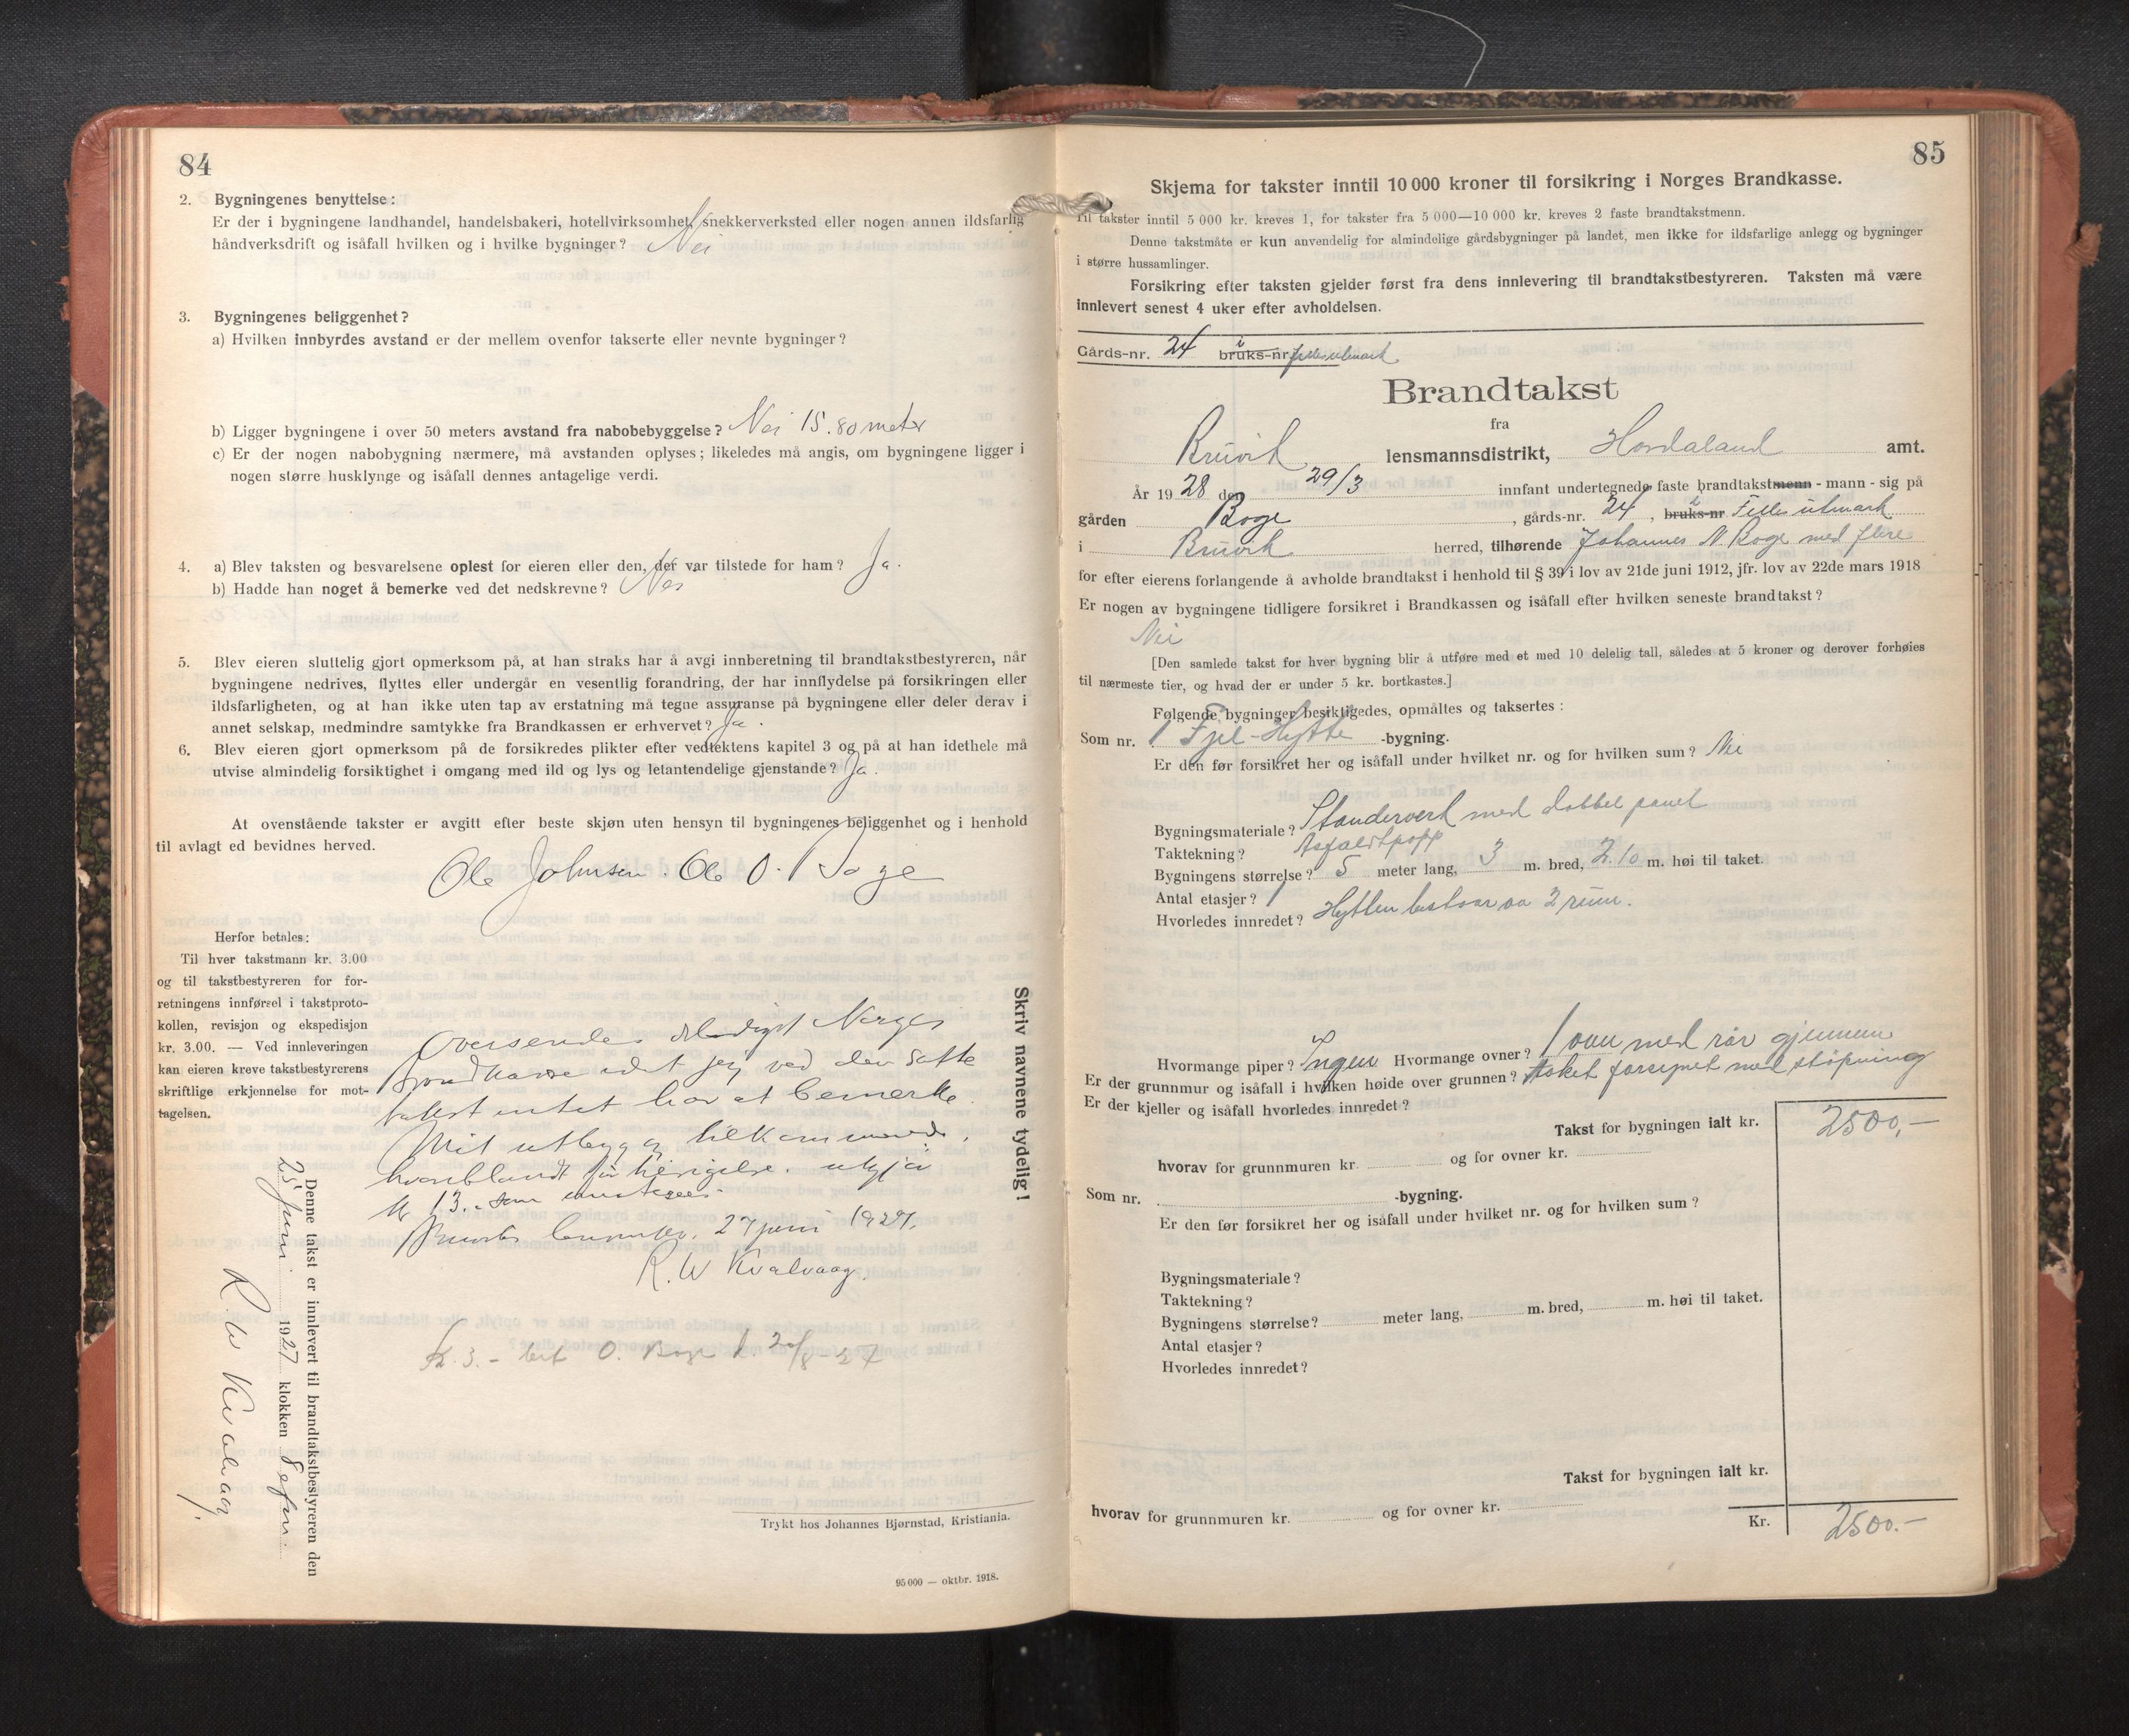 84
2. Bygningenes benyttelse:
Er der i bygningene landhandel, handelsbakeri, hotellvirksomhet, snekkerverksted eller nogen annen ildsfarlig
håndverksdrift og isåfall hvilken og i hvilke bygninger? Nei
3. Bygningenes beliggenhet?
a) Hvilken innbyrdes avstand er der mellem ovenfor takserte eller nevnte bygninger?
b) Ligger bygningene i over 50 meters avstand fra nabobebyggelse? Nei 15.80 meter
c) Er der nogen nabobygning nærmere, må avstanden oplyses; likeledes må angis, om bygningene ligger i
nogen større husklynge og isåfall dennes antagelige verdi.
4. a) Blev taksten og besvarelsene oplest for eieren eller den, der var tilstede for ham? Ja.
b) Hadde han noget å bemerke ved det nedskrevne? Nei
5. Blev eieren sluttelig gjort opmerksom på, at han straks har å avgi innberetning til brandtakstbestyreren, når
bygningene nedrives, flyttes eller undergår en vesentlig forandring, der har innflydelse på forsikringen eller
ildsfarligheten, og at han ikke uten tap av erstatning må tegne assuranse på bygningene eller deler derav i
annet selskap, medmindre samtykke fra Brandkassen er erhvervet? Ja.
6. Blev eieren gjort opmerksom på de forsikredes plikter efter vedtektens kapitel 3 og på at han idethele må
utvise almindelig forsiktighet i omgang med ild og lys og letantendelige gjenstande? Ja.
At ovenstående takster er avgitt efter beste skjøn uten hensyn til bygningenes beliggenhet og i henhold
til avlagt ed bevidnes herved.
Ole Johnsen. Ole O. Boge
Herfor betales:
Til hver takstmann kr. 3.00
og til takstbestyreren for for-
retningens innførsel i takstproto-
kollen, revisjon og ekspedisjon
kr. 3.00. — Ved innleveringen
kan eieren kreve takstbestyrerens
skriftlige erkjennelse for mot-
tagelsen.
Oversendes Norges
Brandkasse idet jeg ved den satte
takst intet har at bemerke.
Mit utlegg og tilkommende,
hvoriblandt for utgjør
kr 13.- som
27 juni 1927.
R. W Kvalvaag.
Kr. 3.- bet O. Boge
Skriv navnene tydelig!
Denne takst er innlevert til brandtakstbestyreren den
25 juni 1927 klokken 8 efm
R. W Kvalvaag.
Trykt hos Johannes Bjørnstad, Kristiania.
95 000 — oktbr. 1918.
85
Skjema for takster inntil 10 000 kroner til forsikring i Norges Brandkasse.
Til takster inntil 5 000 kr. kreves 1, for takster fra 5 000—10 000 kr. kreves 2 faste brandtakstmenn.
Denne takstmåte er kun anvendelig for almindelige gårdsbygninger på landet, men ikke for ildsfarlige anlegg og bygninger
i større hussamlinger.
Forsikring efter taksten gjelder først fra dens innlevering til brandtakstbestyreren. Taksten må være
innlevert senest 4 uker efter avholdelsen.
Gårds-nr. 24 bruks-nr. i fellesutmark
Brandtakst
fra
Bruvik lensmannsdistrikt, Hordaland amt.
År 1928 den 29/3 innfant undertegnede faste brandtakstmenn - mann - sig på
gården Boge, gårds-nr. 24, bruks-nr i Felles utmark
i Bruvik herred, tilhørende Johannes N. Boge med flere
for efter eierens forlangende å avholde brandtakst i henhold til § 39 i lov av 21de juni 1912, jfr. lov av 22de mars 1918
Er nogen av bygningene tidligere forsikret i Brandkassen og isåfall efter hvilken seneste brandtakst?
Nei
[Den samlede takst for hver bygning blir å utføre med et med 10 delelig tall, således at 5 kroner og derover forhøies
til nærmeste tier, og hvad der er under 5 kr. bortkastes.]
Følgende bygninger besiktigedes, opmåltes og taksertes:
Som nr. 1 Fjel-Hytte -bygning.
Er den før forsikret her og isåfall under hvilket nr. og for hvilken sum? Nei
Bygningsmateriale? Standerverk med dobbel panel
Taktekning? Asfaltpapp
Bygningens størrelse? 5 meter lang, 3 m. bred, 2.10 m. høi til taket.
Antal etasjer? 1
Hvorledes innredet? Hytten bestaar av 2 rum.
Hvormange piper? Ingen Hvormange ovner? 1 ovn med rør gjennem
Er der grunnmur og isåfall i hvilken høide over grunnen? taket forsynet med støpning
Er der kjeller og isåfall hvorledes innredet?
Takst for bygningen ialt kr. 2500,-
hvorav for grunnmuren kr. og for ovner kr.
Som nr. -bygning.
Er den før forsikret her og isåfall under hvilket nr. og for hvilken sum?
Bygningsmateriale?
Taktekning?
Bygningens størrelse? meter lang, m. bred, m. høi til taket.
Antal etasjer?
Hvorledes innredet?
Takst for bygningen ialt kr.
hvorav for grunnmuren kr. og for ovner kr.
Kr. 2500.-